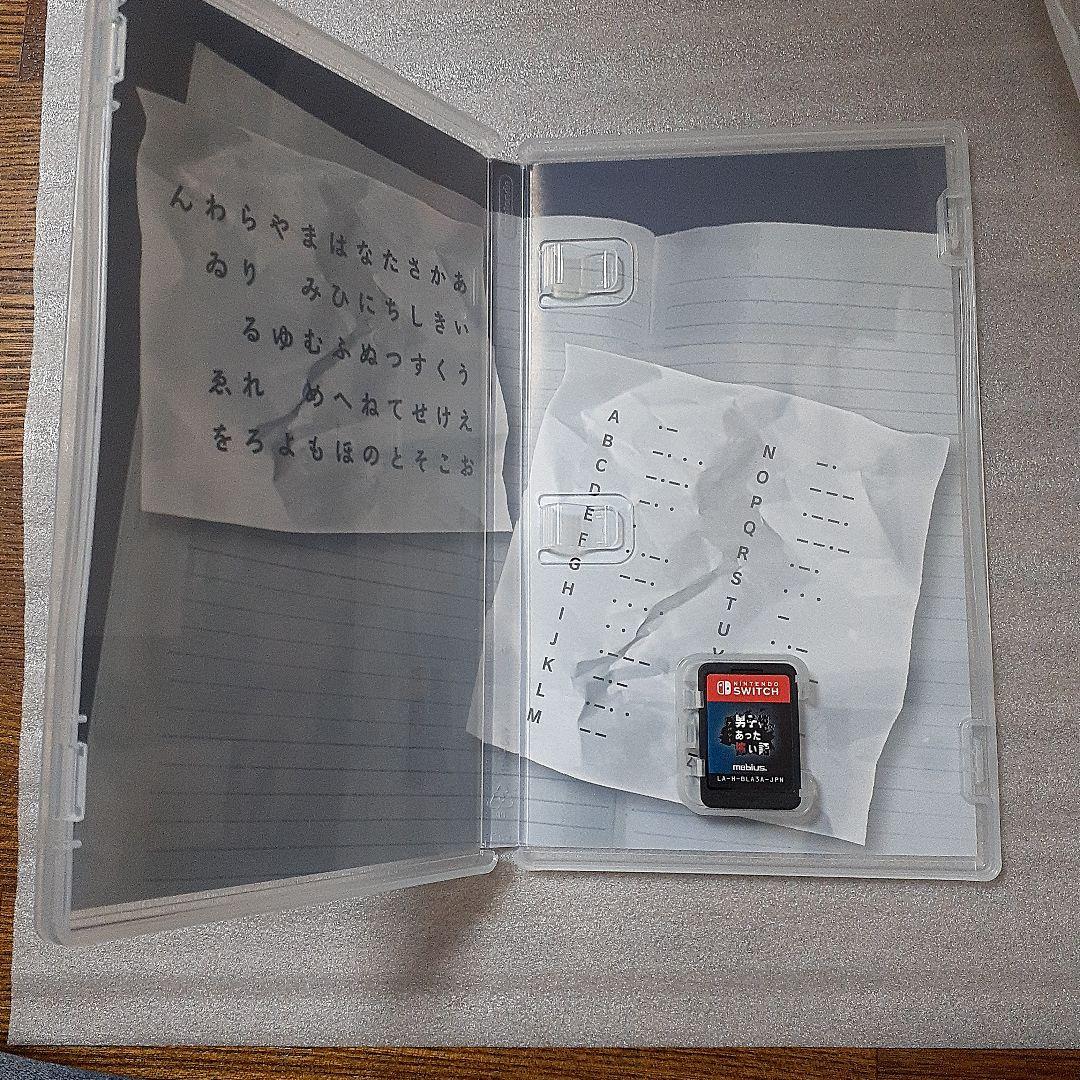 んわらやまはなたさかあ
ゐり みひにちしきい
るゆむふぬつすくう
ゑれ めへねてせけえ
をろよもほのとそこお
A .-
B -...
C -.-.
D -..
E
F ..-.
G --.
H ....
I ..
J .---
K -.-
L .-..
M --
N -.
O ---
P .--.
Q --.-
R .-.
S ...
T -
U ..-
NINTENDO
SWITCH
あった
怖い話
mebius.
LA-H-BLA3A-JPN